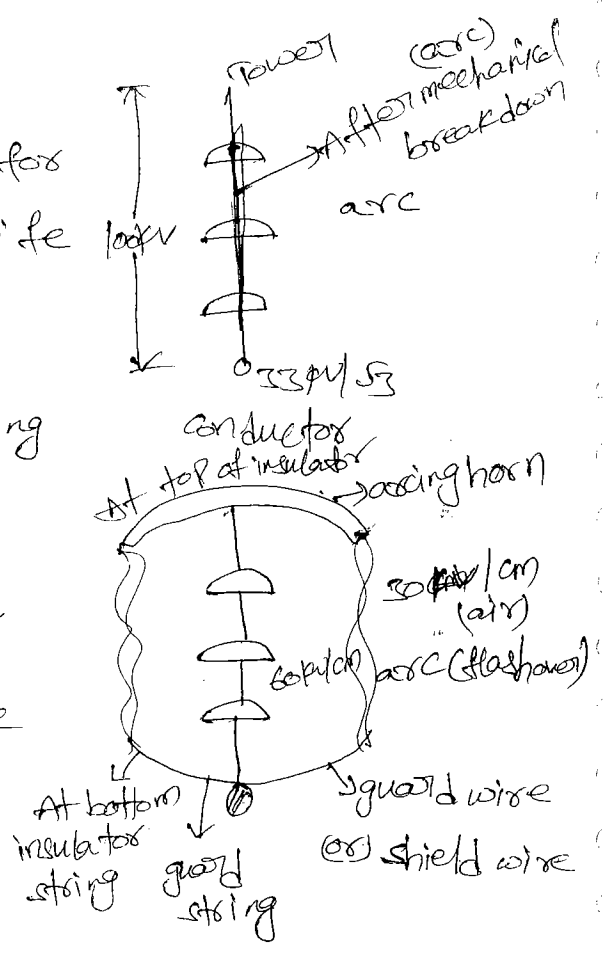 Tower
(arc)
After mechanical
breakdown
for
arc
fe
100kV
33kV/√3
ng
conductor
At top of insulator
arcing horn
30 kV/cm
(air)
60kV/cm
arc (flashover)
At bottom
insulator
string
guard
string
guard wire
(or) shield wire